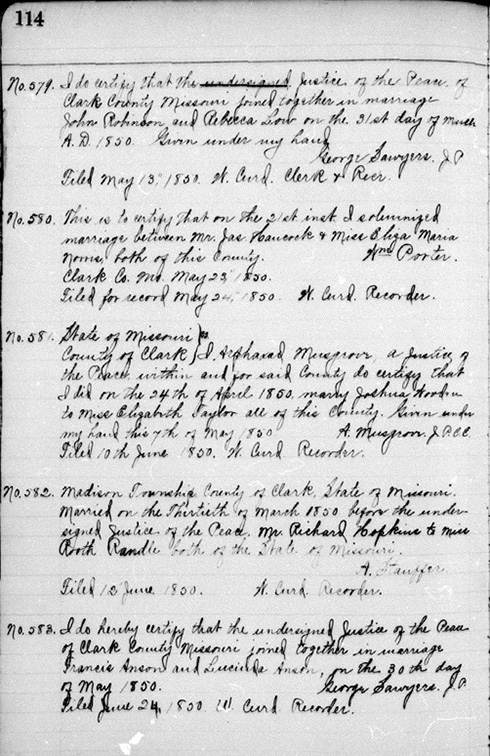 114
No. 579. I do certify that the undersigned Justice of the Peace of
Clark County Missouri joined together in marriage
John Robinson and Rebecca Low on the 31st day of March
A.D. 1850. Given under my hand
George Sawyers, J P
Filed May 13" 1850. W. Curd. Clerk & Recr.
No. 580. This is to certify that on the 21st inst I solemnized
marriage between Mr. Jas Hancock & Miss Eliza Maria
both of this County. Wm Porter.
Clark Co. Mo. May 23" 1850.
Filed for record May 24," 1850. W. Curd. Recorder.
No. 581. State of Missouri } ss
County of Clark } I. Arphaxad Musgrove, a Justice of
the Peace within and for said County do certify that
I did on the 24th of April 1850. marry Joshua Wooden
to Miss Elizabeth Taylor all of this County. Given under
my hand this 7th of May 1850 A. Musgrove J.P.C.C.
Filed 10th June 1850. W. Curd Recorder.
No. 582. Madison Township County of Clark, State of Missouri.
Married on the Thirtieth of March 1850 before the under-
signed Justice of the Peace. Mr. Richard Hopkins to Miss
Rooth Randle both of the State of Missouri.
A. Stauffer
Filed 12" June 1850. W. Curd. Recorder.
No. 583. I do hereby certify that the undersigned Justice of the Peace
of Clark County Missouri joined together in marriage
Francis Anson and Lucinda Anson, on the 30th day
of May 1850. George Sawyers, J.P
Filed June 24, 1850. W. Curd Recorder.